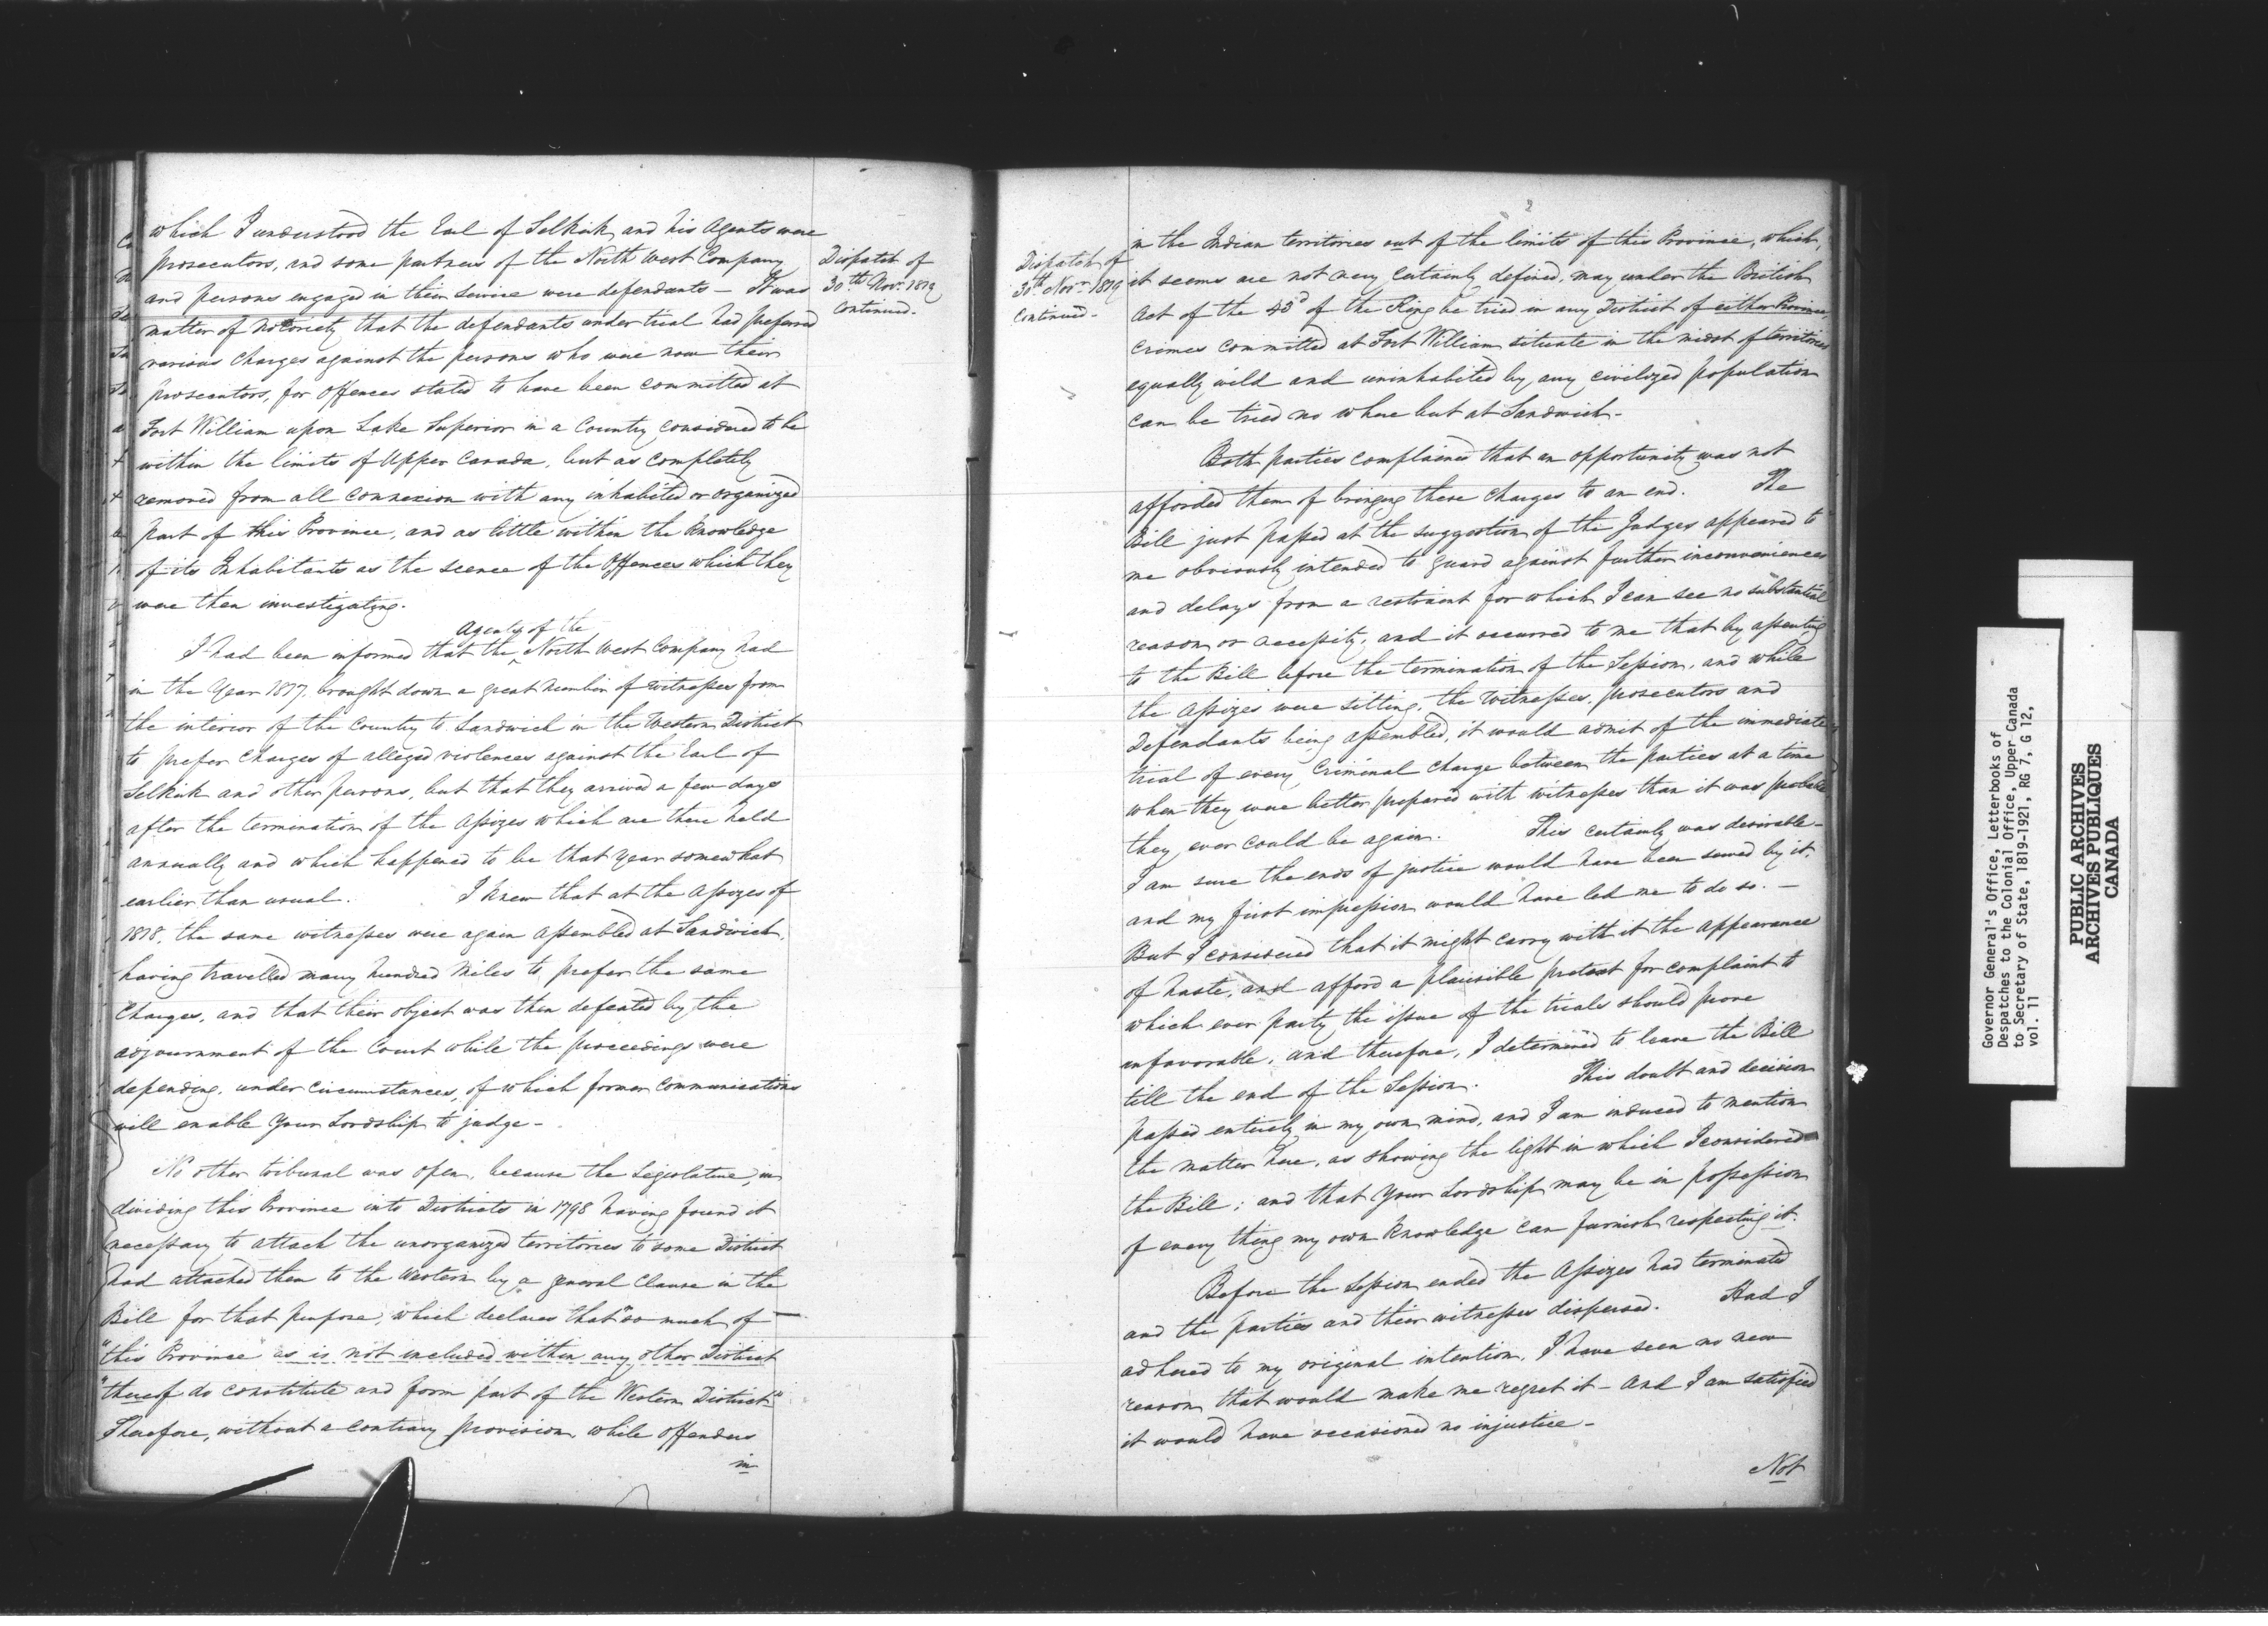 which I understood the Earl of Selkirk and his Agents were
prosecutors, and some partners of the North West Company
and persons engaged in their service were defendants — It was
matter of notoriety that the defendants under trial had preferred
various charges against the persons who were now their
prosecutors, for offences stated to have been committed at
Fort William upon Lake Superior in a Country considered to be
within the limits of Upper Canada, but as completely
removed from all connexion with any inhabited or organized
part of this Province, and as little within the knowledge
of its Inhabitants as the scene of the Offences which they
were then investigating.
Agents of the
I had been informed that the ^ North West Company had
in the Year 1817, brought down a great number of witnesses from
the interior of the Country to Sandwich in the Western District
to prefer charges of alleged violences against the Earl of
Selkirk and other persons, but that they arrived a few days
after the termination of the Assizes which are there held
annually and which happened to be that Year somewhat
earlier than usual. I knew that at the Assizes of
1818, the same witnesses were again assembled at Sandwich,
having travelled many hundred Miles to prefer the same
Charges, and that their object was then defeated by the
adjournment of the Court while the proceedings were
depending, under circumstances, of which former Communications
will enable Your Lordship to judge —
No other tribunal was open, because the Legislature, in
dividing this Province into Districts in 1798 having found it
necessary to attach the unorganized territories to some District
had attached them to the Western by a general Clause in the
Bill for that purpose, which declares that "so much of —
"this Province as is not included within any other District
"thereof do constitute and form part of the Western District"
Therefore, without a contrary provision, while offenders
in
Dispatch of
30th Novr. 1819
Continued.
2
Dispatch of
30th Novr. 1819
Continued —
in the Indian territories out of the limits of this Province, which,
it seems are not very certainly defined, may under the British
Act of the 43d of the King be tried in any District of either Province,
crimes committed at Fort William situate in the midst of territories
equally wild and uninhabited by any civilized population
can be tried no where but at Sandwich —
Both parties complained that an opportunity was not
afforded them of bringing these charges to an end. The
Bill just passed at the suggestion of the Judges appeared to
me obviously intended to guard against further inconveniences
and delays from a restraint for which I can see no substantial
reason or necessity, and it occurred to me that by assenting
to the Bill before the termination of the Session, and while
the Assizes were sitting, the Witnesses, prosecutors and
Defendants being assembled, it would admit of the immediate
trial of every Criminal charge between the parties at a time
when they were better prepared with witnesses than it was probable
they ever could be again. This certainly was desirable —
I am sure the ends of justice would have been served by it,
and my first impression would have led me to do so. —
But I considered that it might carry with it the appearance
of haste, and afford a plausible pretext for complaint to
which ever party the issue of the trials should prove
unfavorable, and therefore, I determined to leave the Bill
till the end of the Session. This doubt and decision
passed entirely in my own mind, and I am induced to mention
the matter here, as showing the light in which I considered
the Bill; and that Your Lordship may be in possession
of every thing my own knowledge can furnish respecting it.
Before the Session ended the Assizes had terminated
and the parties and their witnesses dispersed. Had I
adhered to my original intention, I have seen no new
reason that would make me regret it — And I am satisfied
it would have occasioned no injustice —
Not
Governor General's Office, Letterbooks of
Despatches to the Colonial Office, Upper Canada
to Secretary of State, 1819-1921, RG 7, G 12,
vol. 11
PUBLIC ARCHIVES
ARCHIVES PUBLIQUES
CANADA